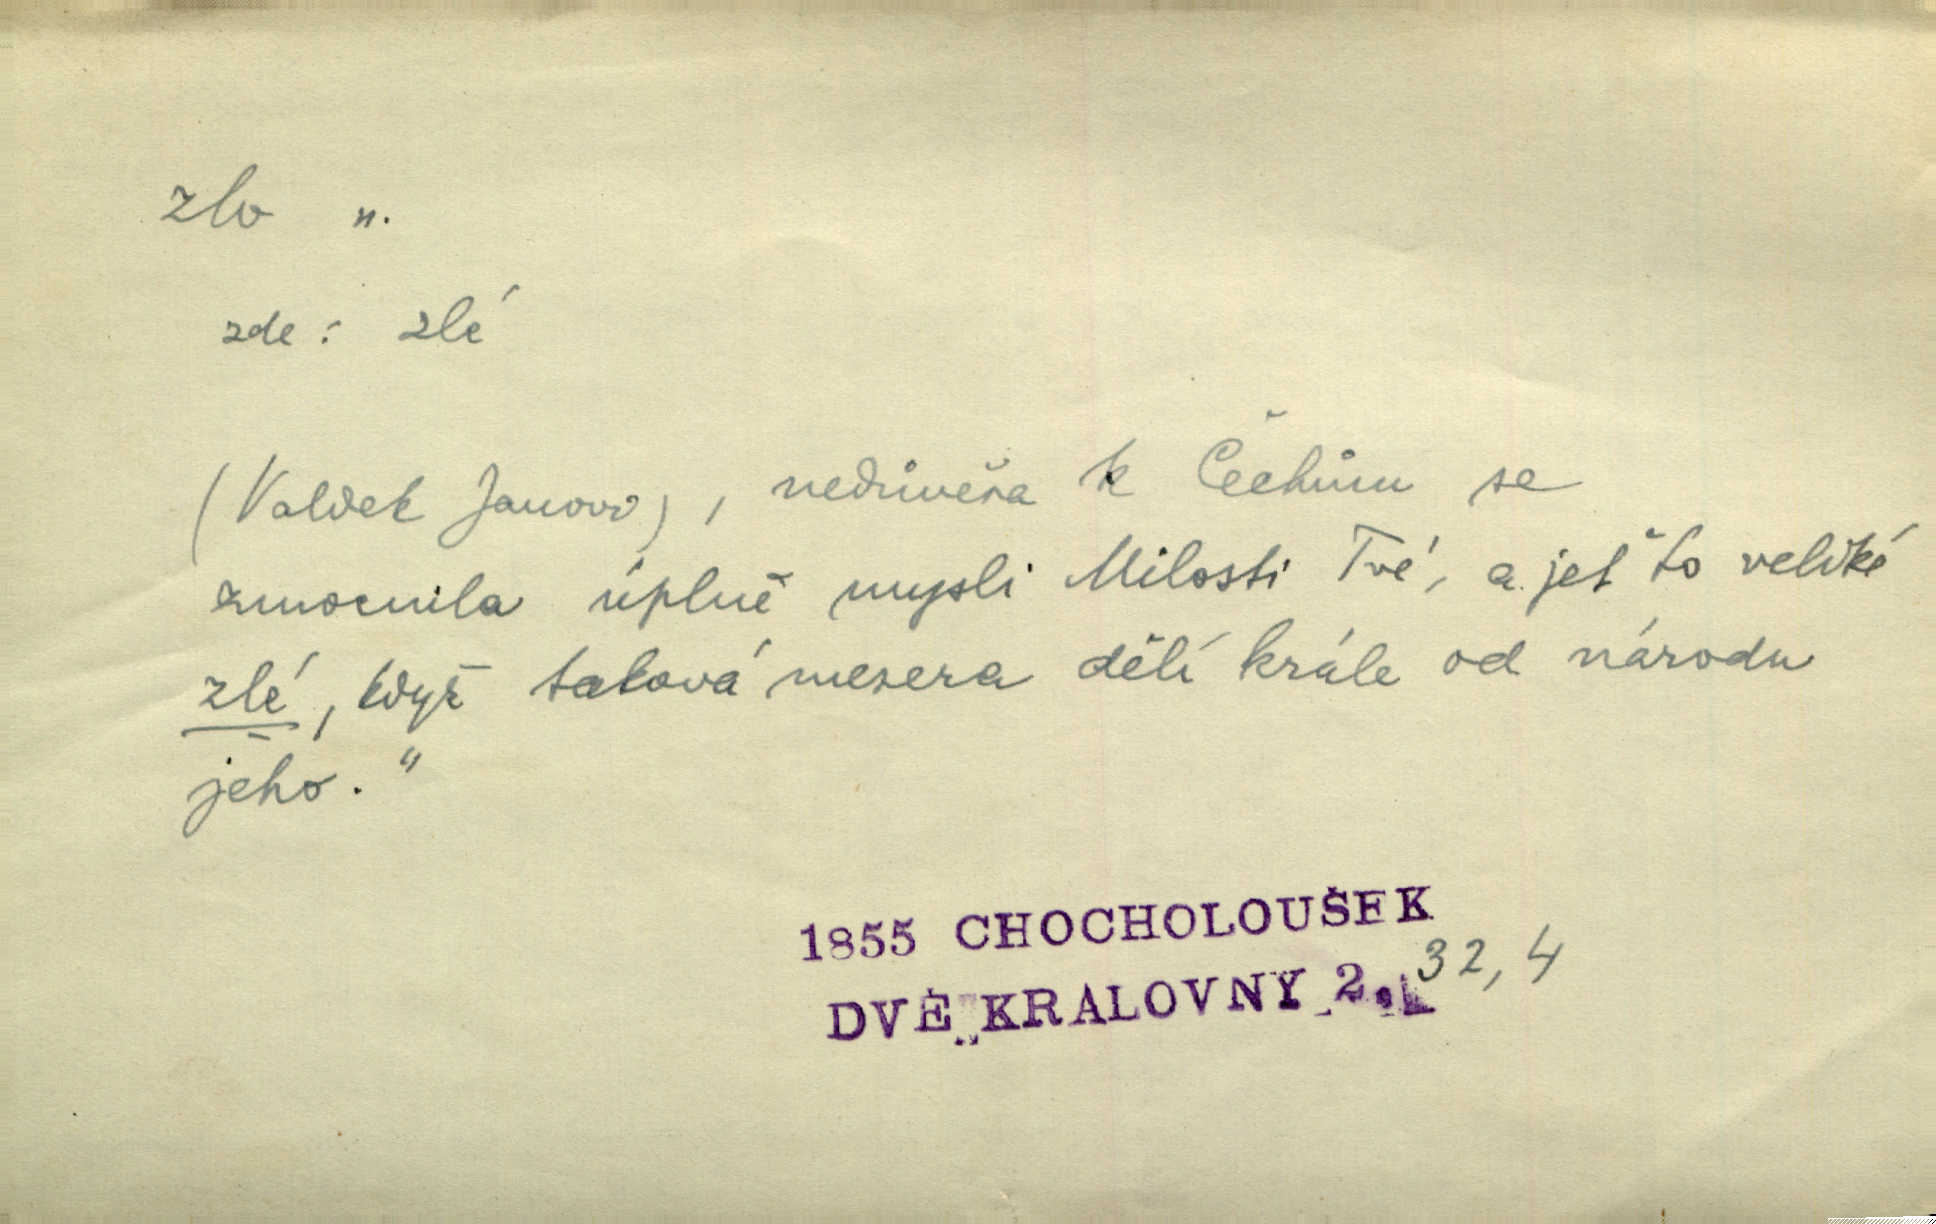 zlo n.
zde: zlé
(Valdek Janovi), nedůvěra k Čechům se
zmocnila úplně mysli Milosti Tvé, a jeť to veliké
zlé, když taková mezera dělí krále od národu
jeho."
1855 CHOCHOLOUŠEK
DVĚ KRALOVNY 2. 32, 4